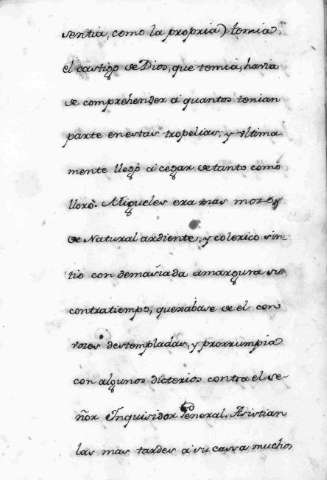 sentia, como la propria) temia,
el castigo de Dios, que temia, havia
de comprehender á quantos tenian
parte en estas tropelias, y ultima
mente llegó á cegar de tanto como
lloró. Miqueles era mas mozo, y
de Natural ardiente, y colerico sin
tio con demasiada amargura su
contratiempo, quexabase de el con
voces destempladas, y prorrumpia
con algunos dicterios contra el Se
ñor Inquisidor General. Asistian
las mas tardes á su cassa muchos